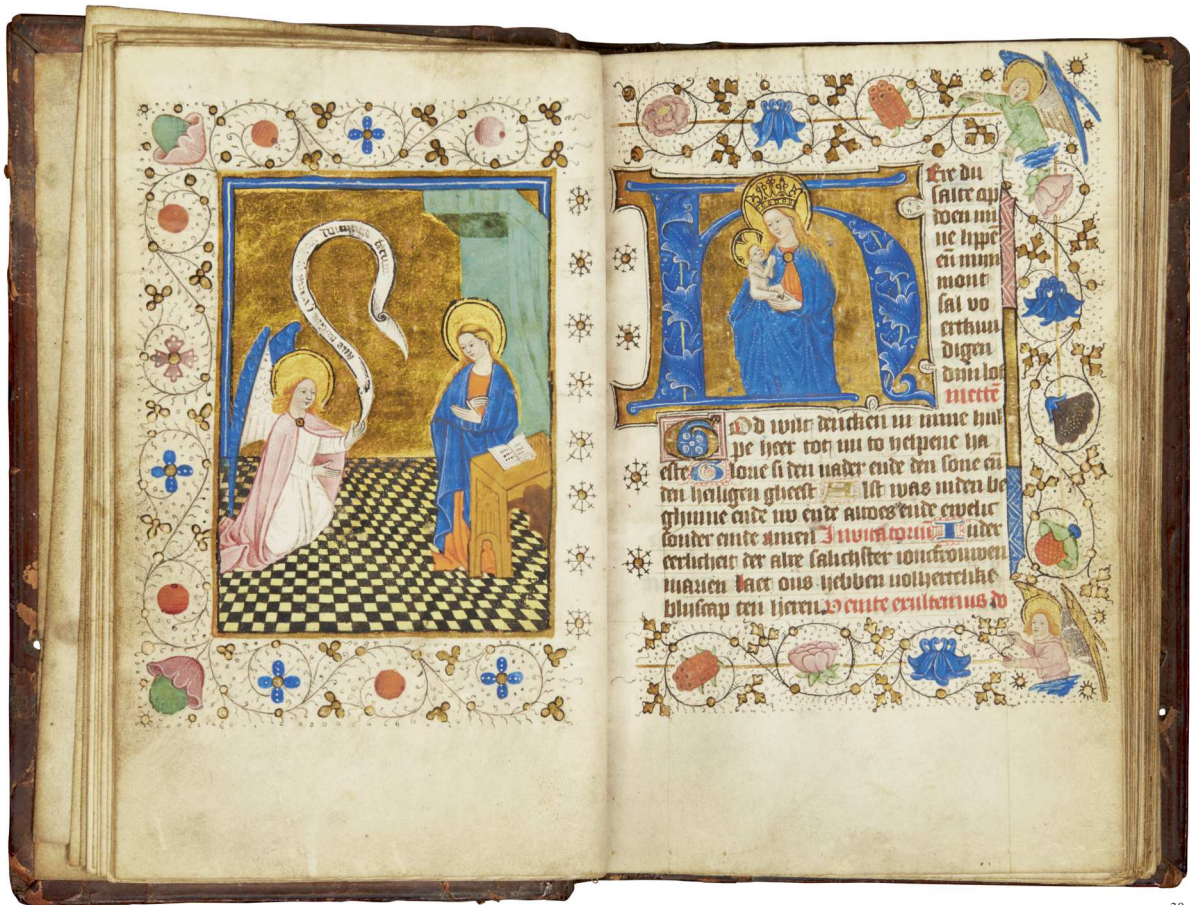 aue maria gracia dominus tecum
Ere du
salte op
doen mi
ne lippē
eñ mijn
mont
sal vo
ertkun
digen
dijn lof
mettē
God wilt dencken in mine hul
pe heer tot mi to helpene ha
este Gloue si den uader ende den sone en
den heiligen gheest Alst was inden be
ghinne ende nv ende altoes ende ewelic
sonder einde amen Inuitatorium Inder
eerlicheit der alre salichster ioncfrouwen
marien laet ons hebben volhertelike
bliscap ten heren Venite exultemus do